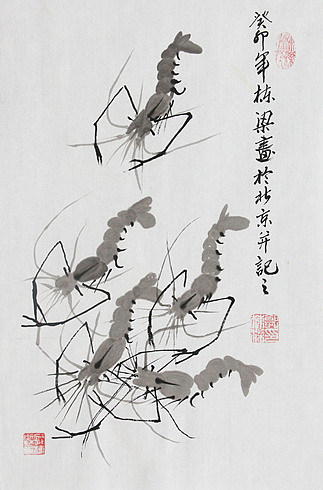 癸卯年栋梁画於北京并記之